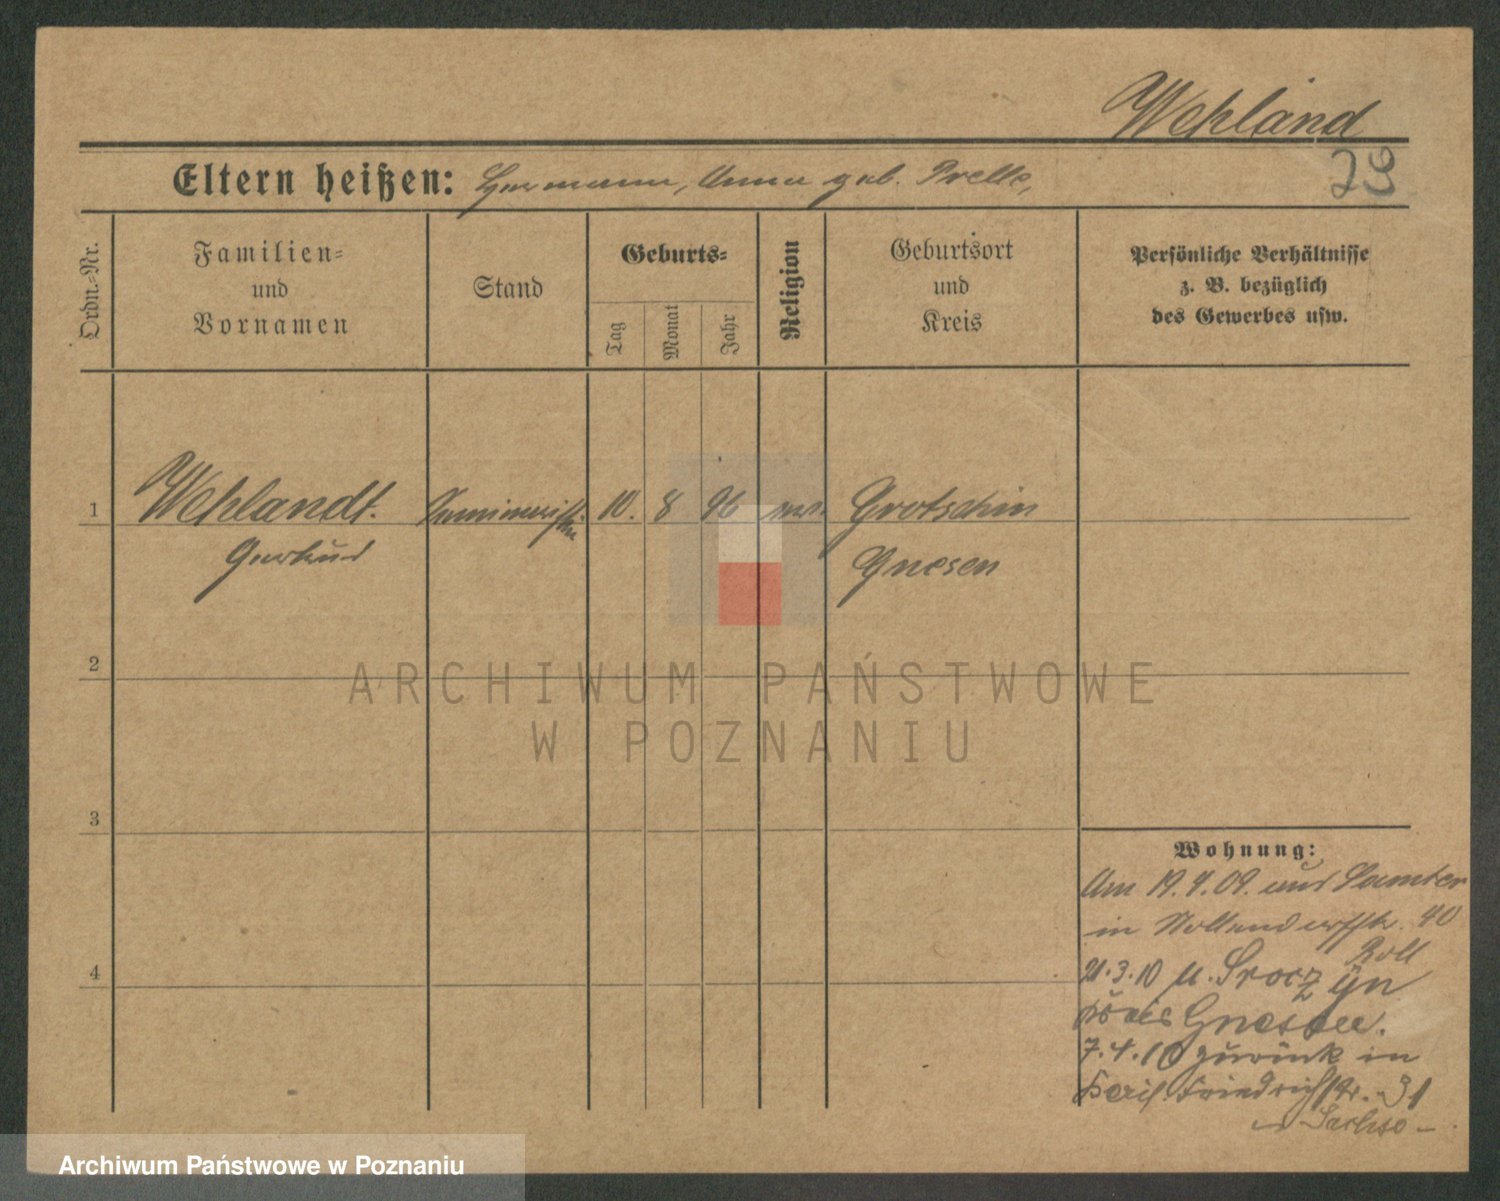 Wehland
29
Eltern heißen: Hermann, Anna geb. Prelle,
Ordn.-Nr.
Familien-
und
Vornamen
Stand
Geburts-
Tag
Monat
Jahr
Religion
Geburtsort
und
Kreis
Persönliche Verhältnisse
z. B. bezüglich
des Gewerbes usw.
1
Wehlandt. Seminaristin 10. 8 96 ev. Grotschin
Gertrud Gnesen
2
3
4
Wohnung:
Am 19.4.09. aus Samter
in Nollendorfstr. 40
Roll
21.3.10 n.
Kreis Gnesen.
7.4.10 zurück in
Friedrichstr. 31
Sachse
ARCHIWUM PAŃSTWOWE
W POZNANIU
Archiwum Państwowe w Poznaniu